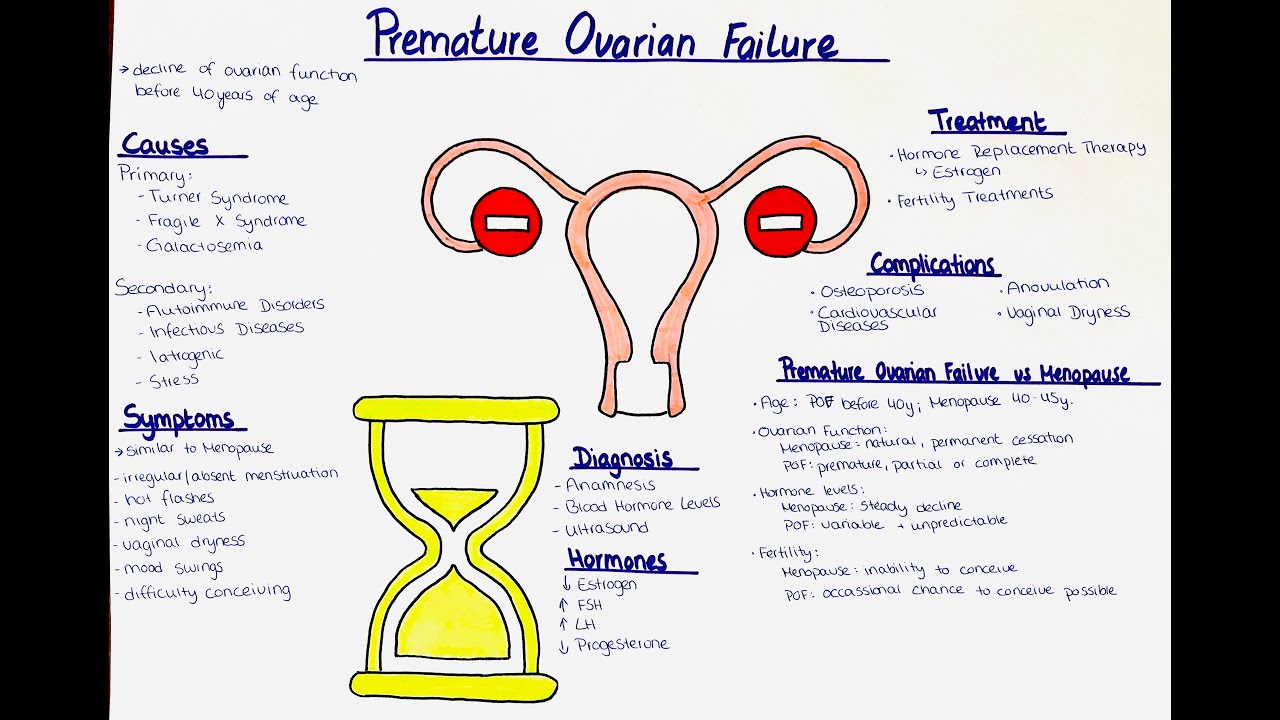 Premature Ovarian Failure
→ decline of ovarian function
before 40 years of age
Causes
Primary:
- Turner Syndrome
- Fragile X Syndrome
- Galactosemia
Secondary:
- Autoimmune Disorders
- Infectious Diseases
- Iatrogenic
- Stress
Symptoms
→ Similar to Menopause
- irregular/absent menstruation
- hot flashes
- night sweats
- vaginal dryness
- mood swings
- difficulty conceiving
Diagnosis
- Anamnesis
- Blood Hormone Levels
- Ultrasound
Hormones
↓ Estrogen
↑ FSH
↑ LH
↓ Progesterone
Treatment
• Hormone Replacement Therapy
↳ Estrogen
• Fertility Treatments
Complications
• Osteoporosis
• Cardiovascular
Diseases
• Anovulation
• Vaginal Dryness
Premature Ovarian Failure vs Menopause
• Age: POF before 40y; Menopause 40-45y.
• Ovarian Function:
Menopause: natural, permanent cessation
POF: premature, partial or complete
• Hormone levels:
Menopause: Steady decline
POF: variable + unpredictable
• Fertility:
Menopause: inability to conceive
POF: occassional chance to conceive possible